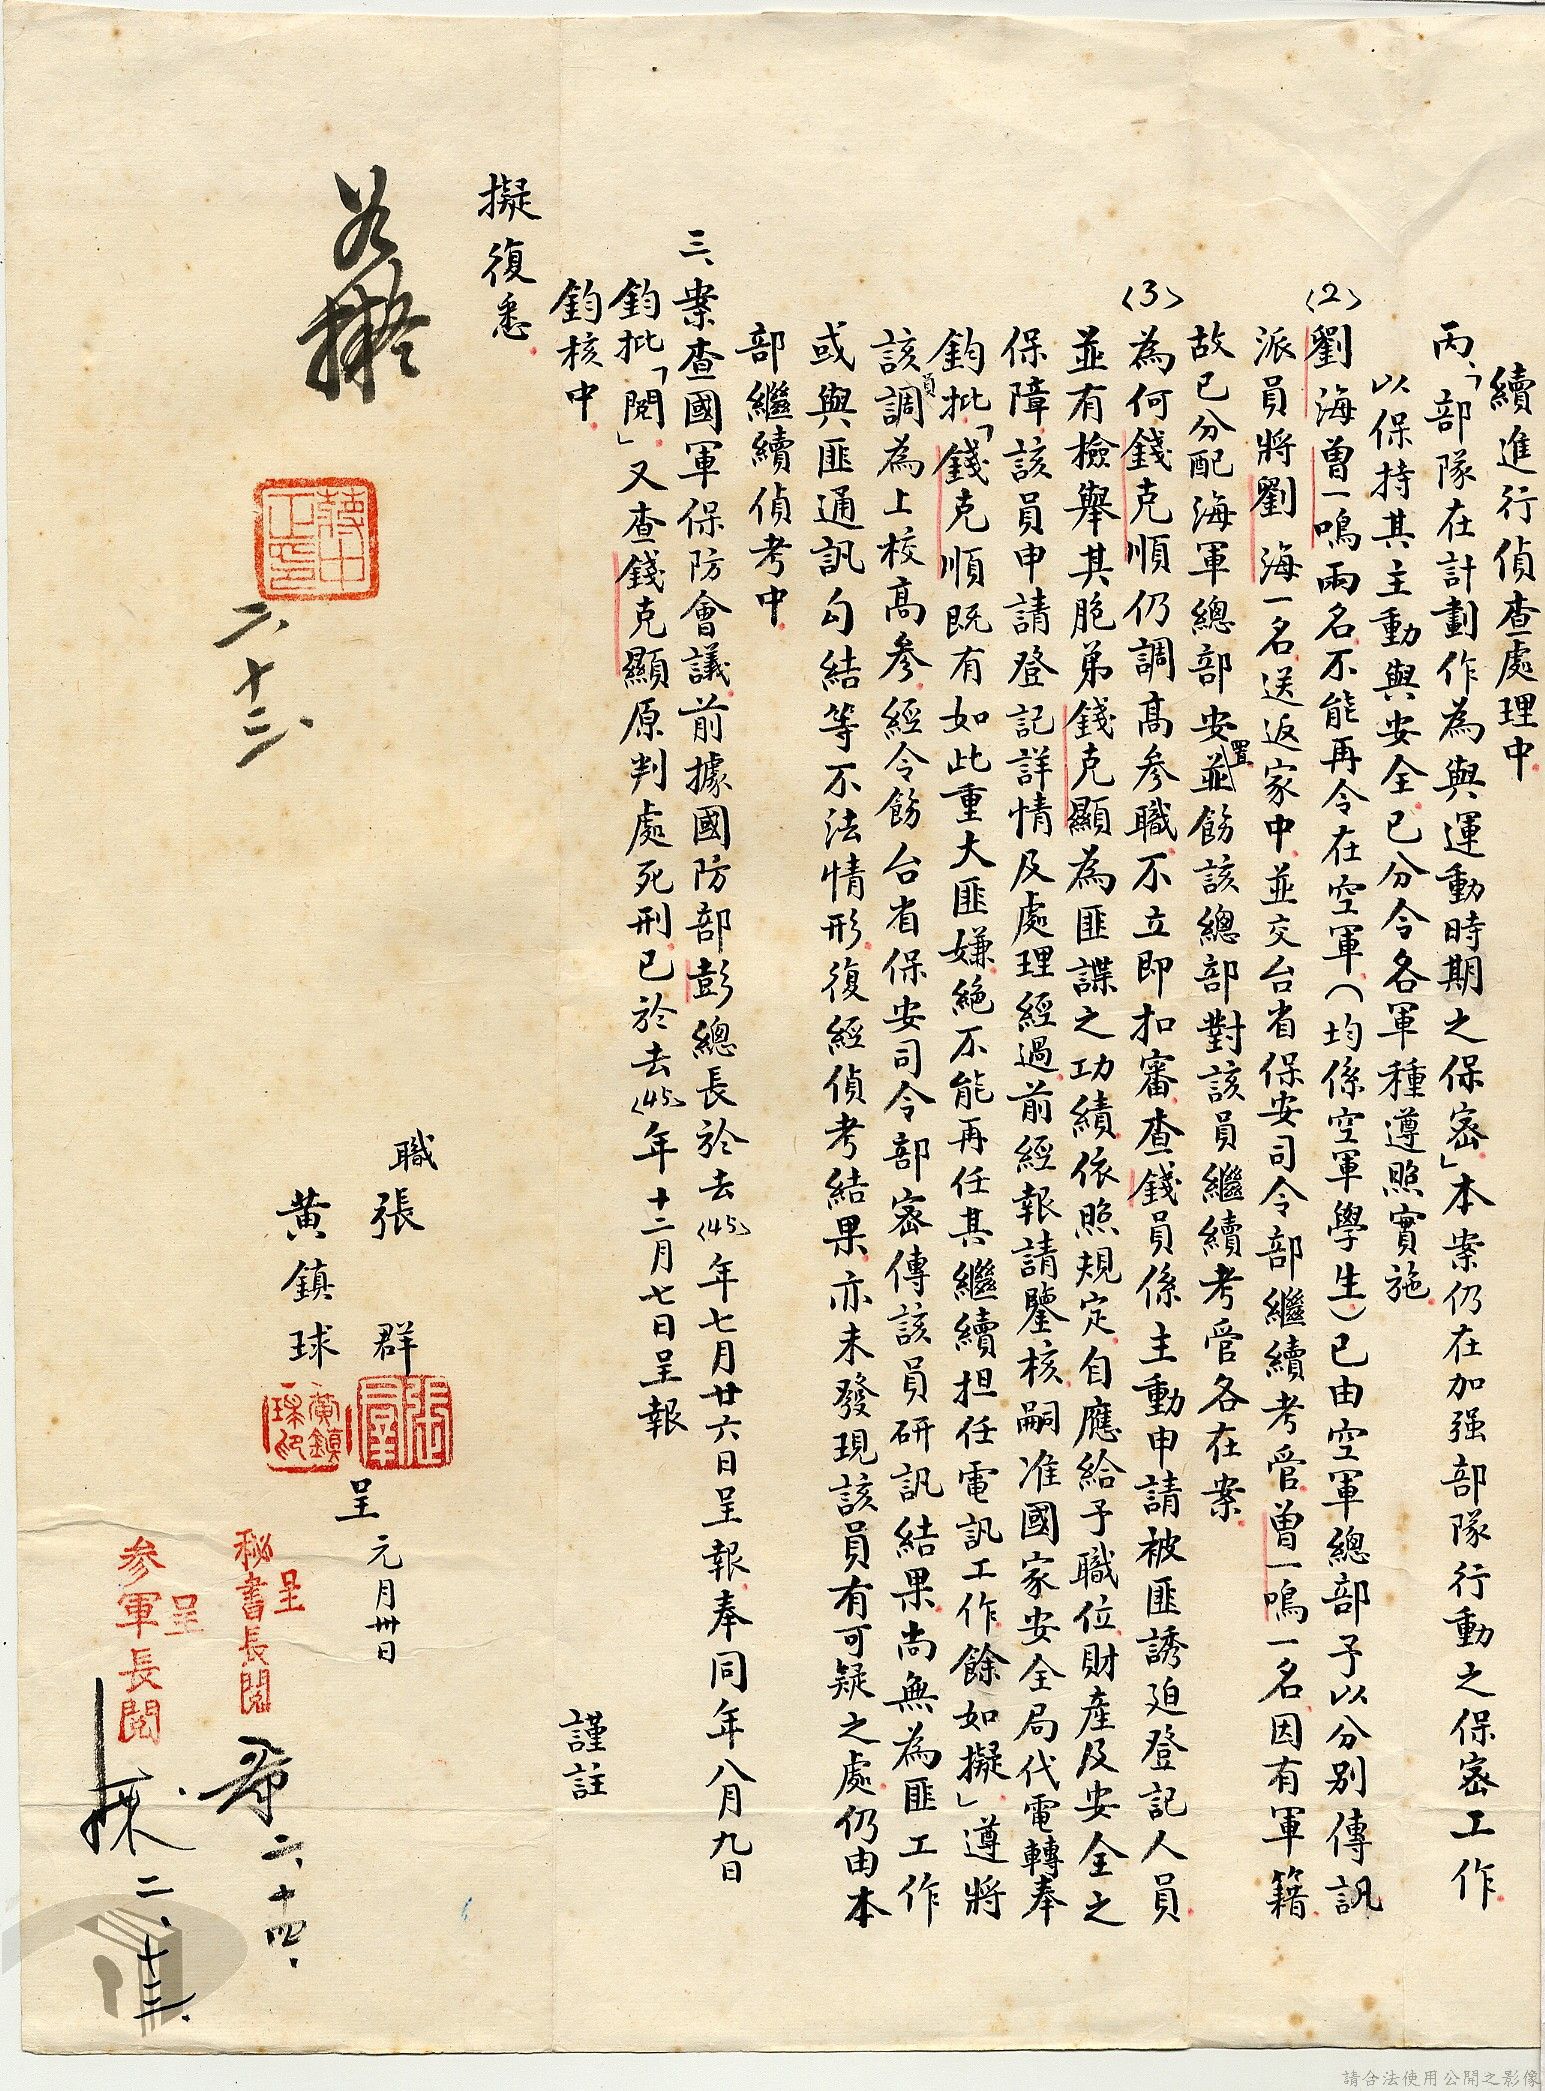 續進行偵查處理中
丙、「部隊在計劃作為與運動時期之保密」本案仍在加强部隊行動之保密工作
以保持其主動與安全已分令各軍種遵照實施
〈2〉劉海曾一鳴兩名不能再令在空軍(均係空軍學生)已由空軍總部予以分別傳訊
派員將劉海一名送返家中並交台省保安司令部繼續考管曾一鳴一名因有軍籍
故已分配海軍總部安置並飭該總部對該員繼續考管各在案
〈3〉為何錢克順仍調高參職不立即扣審查錢員係主動申請被匪誘迫登記人員
並有檢舉其胞弟錢克顯為匪諜之功績依照規定自應給予職位財產及安全之
保障該員申請登記詳情及處理經過前經報請鑒核嗣准國家安全局代電轉奉
鈞批「錢克順既有如此重大匪嫌絕不能再任其繼續担任電訊工作餘如擬」遵將
該員調為上校高參經令飭台省保安司令部密傳該員研訊結果尚無為匪工作
或與匪通訊勾結等不法情形復經偵考結果亦未發現該員有可疑之處仍由本
部繼續偵考中
三、案查國軍保防會議前據國防部彭總長於去〈45〉年七月廿六日呈報奉同年八月九日
鈞批「閱」又查錢克顯原判處死刑已於去〈45〉年十二月七日呈報
鈞核中
謹註
擬復悉
如擬
蔣中正印
二、十三、
職張群
張群
黃鎮球
黃鎮球印
呈
元月卅日
呈
秘書長閱
二、十四、
呈
參軍長閱
二、十三、
請合法使用公開之影像